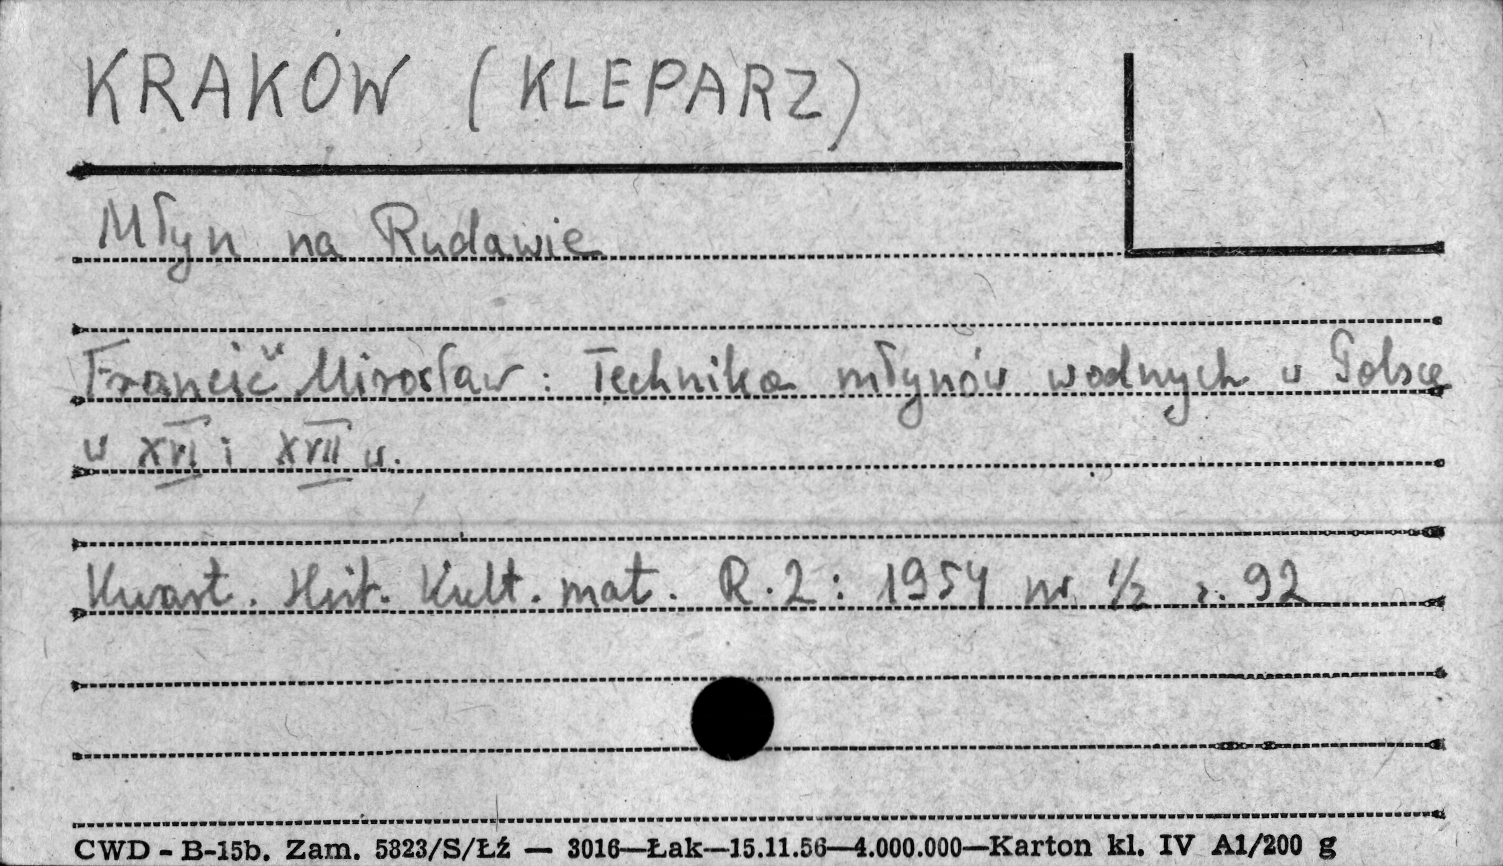 KRAKÓW (KLEPARZ)
Młyn na Rudawie
Francić Mirosław: Technika młynów wodnych w Polsce
w XVI i XVII w.
Kwart. Hist. Kult. mat. R.2: 1954 nr 1/2 s. 92
CWD - B-15b. Zam. 5823/S/Łź — 3016—Łak—15.11.56—4.000.000—Karton kl. IV A1/200 g